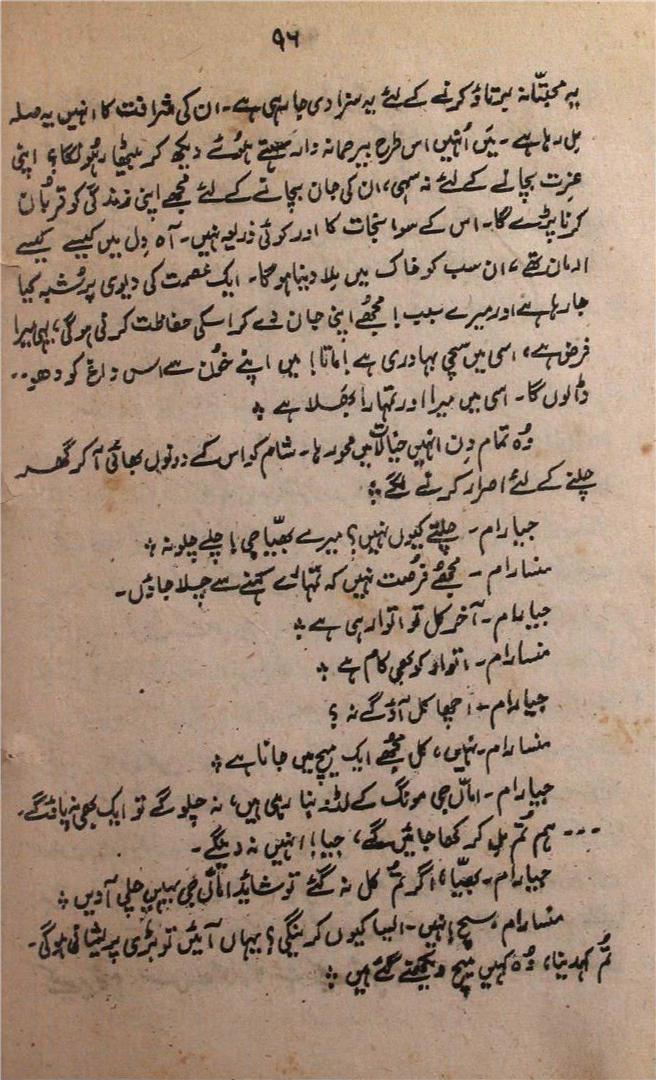 ۹۶
یہ محبتّانہ برتاؤ کرنے کے لئے یہ سزا دی جا رہی ہے۔ ان کی شرافت کا انہیں یہ صلہ
مل رہا ہے۔ میَں اُنہیں اس طرح بیرحمانہ وار سہتے ہوُئے دیکھ کر بیٹھا رہُونگا؟ اپنی
عزت بچانے کے لئے نہ سہی، ان کی جان بچانے کے لئے مجھے اپنی زندگی کو قربُان
کرنا پڑے گا۔ اس کے سوا نجات کا اور کوئی ذریعہ نہیں۔ آہ دِل میں کیسے کیسے
ارمان تھے، ان سب کو خاک میں مِلا دینا ہوگا۔ ایک عصمت کی دیوی پر شُبہ کیا
جا رہا ہے اور میرے سبب! مجھُے اپنی جان دے کر اسکی حفاظت کرنی ہوگی، یہی میرا
فرض ہے، اسی میں سچی بہادری ہے! ماتا! میں اپنے خوُن سے اس داغ کو دھو۔۔
ڈالوں گا۔ اسی میں میرا اور تمہارا بھَلا ہے ؞
وُہ تمام دِن انہیں خیالات میں محو رہا۔ شام کو اس کے دونوں بھائی آ کر گھر
چلنے کے لئے اصرار کرنے لگے ؞
جیارام۔ چلتے کیوں نہیں؟ میرے بھیّا جی! چلے چلو نہ ؞
منسارام۔ مجھُے فرصُت نہیں کہ تمہارے کہنے سے چلا جاؤں۔
جیارام۔ آخر کل تو اتوار ہی ہے ؞
منسارام۔ اتوار کو بھی کام ہے ؞
جیارام۔ اچھا کل آؤگے نہ؟
منسارام۔ نہیں، کل مجھُے ایک میچ میں جانا ہے ؞
جیارام۔ اماّں جی مونگ کے لڈو بنا رہی ہیں، نہ چلو گے تو ایک بھی نہ پاؤگے۔
۔۔۔ ہم تُم مل کر کھا جائیں گے، جیا! انہیں نہ دینگے۔
جیارام۔ بھیّا، اگر تُم کل نہ گئے تو شائد امّاں جی یہیں چلی آویں ؞
منسارام۔ سچ! نہیں۔ ایسا کیوں کرینگی؟ یہاں آئیں تو بڑی پریشانی ہوگی۔
تُم کہدینا، وُہ کہیں میچ دیکھنے گئے ہیں ؞